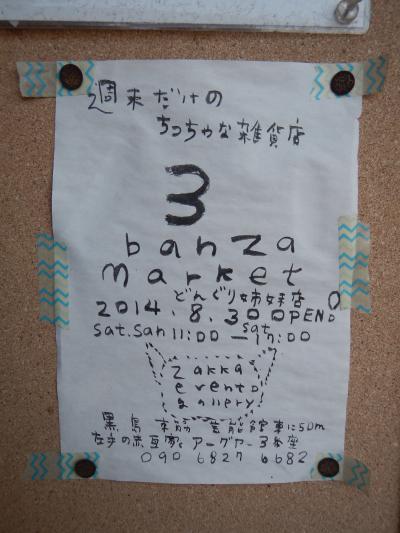 週末だけの
ちっちゃな雑貨店
3
banza
market
どんぐり姉妹店
2014.8.30 OPEN!
sat.san 11:00 ー 17:00
sat
zakka
evento
gallery
黒島 東に50m
左手の赤瓦家、アーグヤー3番座
090 6827 6682